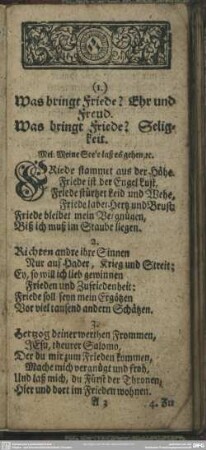 (1.)
Was bringt Friede? Ehr und
Freud.
Was bringt Friede? Selig-
keit.
Mel. Meine See'e laß es gehen,ꝛc.
FRiede stammet aus der Höhe,
Friede ist der Engel Lust,
Friede stürtzet Leid und Wehe,
Friede labet Hertz und Brust;
Friede bleibet mein Vergnügen,
Biß ich muß im Staube liegen.
2.
Richten andre ihre Sinnen
Nur auf Hader, Krieg und Streit;
Ey, so will ich lieb gewinnen
Frieden und Zufriedenheit:
Friede soll seyn mein Ergötzen
Vor viel tausend andern Schätzen.
3.
Hertzog deiner werthen Frommen,
JEsu, theurer Salomo,
Der du mir zum Frieden kommen,
Mache mich vergnügt und froh,
Und laß mich, du Fürst der Thronen,
Hier und dort im Frieden wohnen.
4. Zu